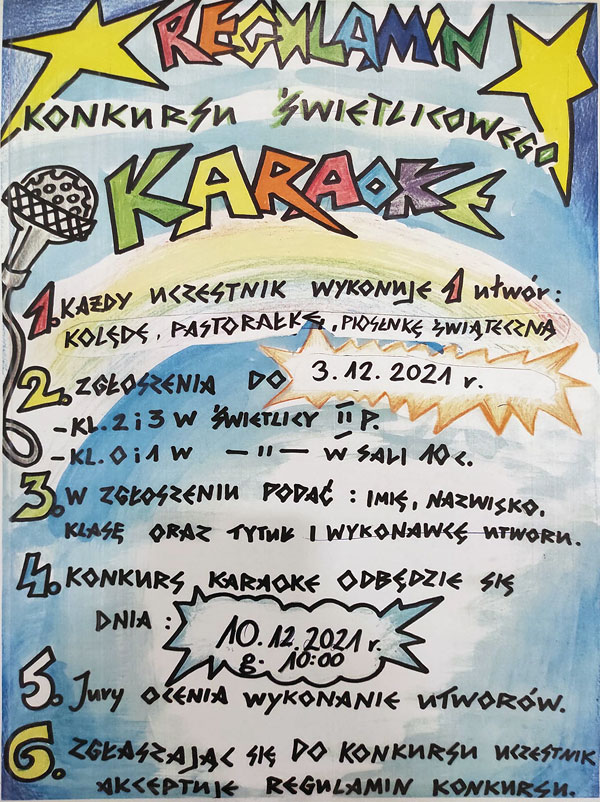 REGULAMIN
KONKURSU ŚWIETLICOWEGO
KARAOKE
1. KAŻDY UCZESTNIK WYKONUJE 1 UTWÓR:
KOLĘDĘ, PASTORAŁKĘ, PIOSENKĘ ŚWIĄTECZNĄ
2. ZGŁOSZENIA DO 3.12.2021 r.
- KL. 2 i 3 W ŚWIETLICY II P.
- KL. 0 i 1 W — " — W SALI 10 C.
3. W ZGŁOSZENIU PODAĆ: IMIĘ, NAZWISKO,
KLASĘ ORAZ TYTUŁ I WYKONAWCĘ UTWORU.
4. KONKURS KARAOKE ODBĘDZIE SIĘ
DNIA: 10.12.2021 r.
g. 10:00
5. Jury OCENIA WYKONANIE UTWORÓW.
6. ZGŁASZAJĄC SIĘ DO KONKURSU UCZESTNIK
AKCEPTUJE REGULAMIN KONKURSU.